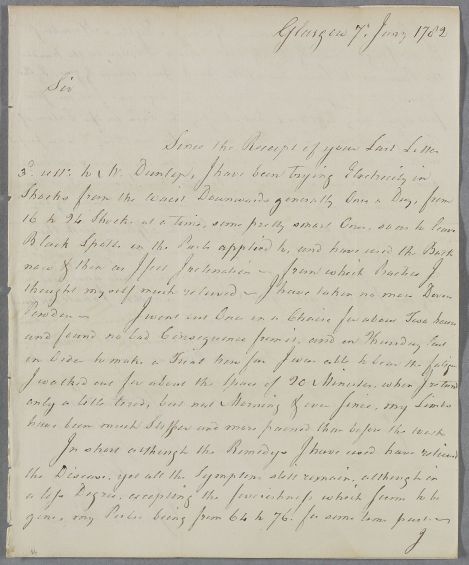 Glasgow 7th Jany 1782
Sir
Since the Receipt of your Last Letter
3d. ulto. to Mr. Dunlop, I have been trying Electricity in
Shocks from the waist Downwards generally Once a Day, from
16 to 24 Shocks at a time, some pretty smart Ones, so as to leave
Black Spots in the Parts applied to, and have used the Bath
now & then as I felt Inclination – from which Practice I
thought myself much relieved – I have taken no more Dovers
Powder – I went out Once in a Chaise for about Two hours
and found no bad Consequence from it, and on Thursday last
in Order to make a Trial how far I was able to bear the fatigue
I walked out for about the Space of 20 Minutes, when I returned
only a little tired, but next Morning & ever since, my Limbs
have been much Stiffer and more pained than before the walk
In short although the Remedys I have used have relieved
the Disease, yet all the Symptoms still remain, although in
a less Degree, excepting the feverishness which seems to be
gone, my Pulse being from 64 to 76. for some time past –
I